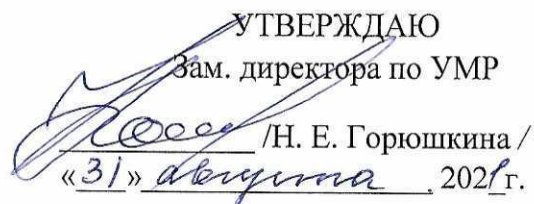 УТВЕРЖДАЮ
Зам. директора по УМР
/Н. Е. Горюшкина /
«31» августа 2021г.